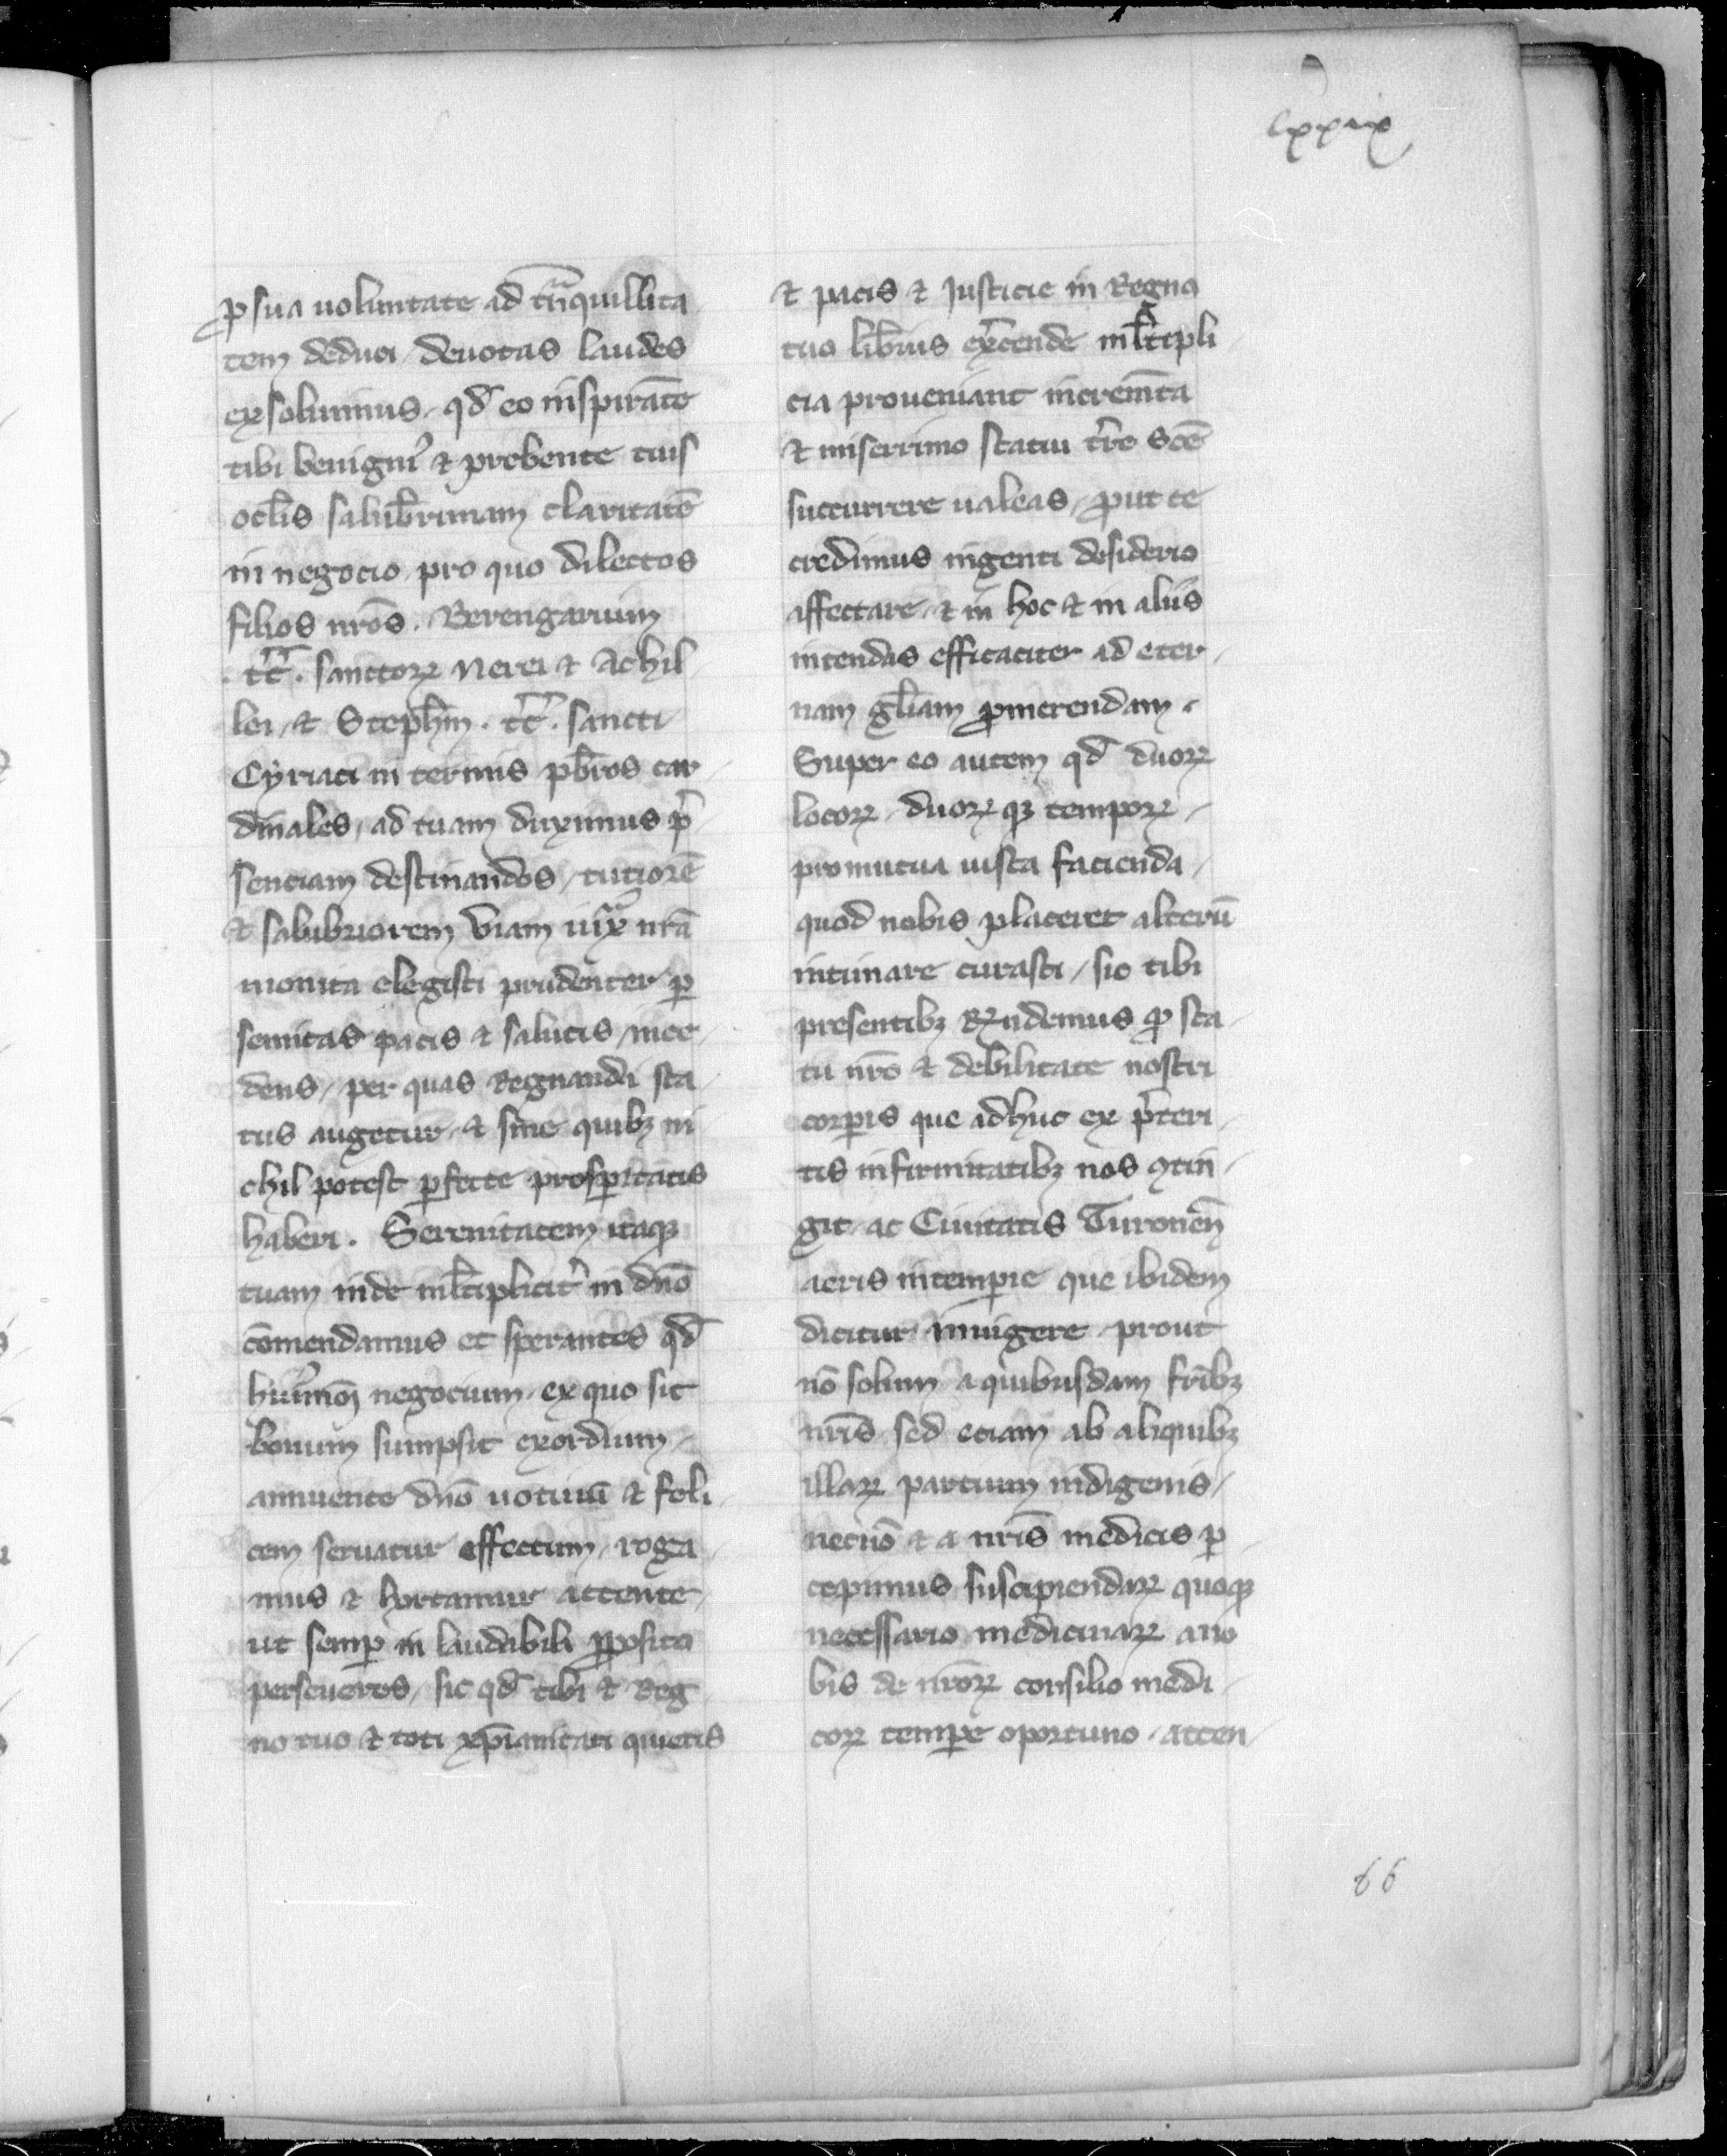 lxxix
ꝓ sua uoluntate ad tͣnquillita
tem deduci / deuotas laudes
exsoluimus / qd̄ eo inspirāte
tibi benigni᷒ ⁊ prebente tuis
oclīs salub̄rimam claritatē
in negocio pro quo dilectos
filios nrōs . Berengarium
. tt̄ . sanctoꝝ Nerei ⁊ Achil
lei / ⁊ Steph̄m . tt̄ . sancti
Cyriaci in termis pb̄ros car
dinales / ad tuam duximus p̄
senciam destinandos / tutiorē
⁊ salubriorem viam iuxͣ nrā
monita elegisti prudenter ꝑ
semitas pacis ⁊ salutis / ince
dens / per quas Regnandi sta
tus augetur / ⁊ sine quibꝫ ni
chil potest ꝑfecte prosꝑitatis
haberi . Serenitatem itaqꝫ
tuam inde ml̄tiplicit᷑ in dnō
cōmendamus et sperantes qd̄
hui᷒mōi negocium / ex quo sic
bonum sumpsit exordium /
annuente dnō uotiuū ⁊ feli
cem seruatur effectum / roga
mus ⁊ hortamur attente /
ut semꝑ in laudabili ꝓposito
perseueres / sic qd̄ tibi ⁊ Reg
no tuo ⁊ toti xp̄ianitati quietis
⁊ pacis ⁊ Justicie in Regno
tuo lib̄ius ex̄cende ml̄tipli
cia proueniant increm̄ta
⁊ miserrimo statui t̄re Scē
succurrere ualeas / ꝓut te
credimus ingenti desiderio
affectare / ⁊ in hoc ⁊ in aliis
intendas efficaciter ad eter
nam gl̄iam ꝓmerendam .
Super eo autem qd̄ duoꝝ
locoꝝ / duoꝝ qꝫ tempoꝝ /
pro mutua uista facienda /
quod nobis placeret alterū
intimare curasti / sic tibi
presentibꝫ Rn̄demus ꝙ sta
tu nrō ⁊ debilitate nostri
corꝑis que adhuc ex p̄teri
tis infirmitatibꝫ nos ꝯtin
git / ac Ciuitatis Turonen̄
aeris intemꝑie que ibidem
dicitur inuigere / prout
nō solum a quibusdam fr̄ibꝫ
nrīs / sed eciam ab aliquibꝫ
illaꝝ partium indigenis /
necnō ⁊ a nrīs medicis ꝑ
cepimus / suscipiendaꝝ quoqꝫ
necessario medicinaꝝ a no
bis de nrōꝝ consilio medi
coꝝ temꝑe oportuno / atten
66